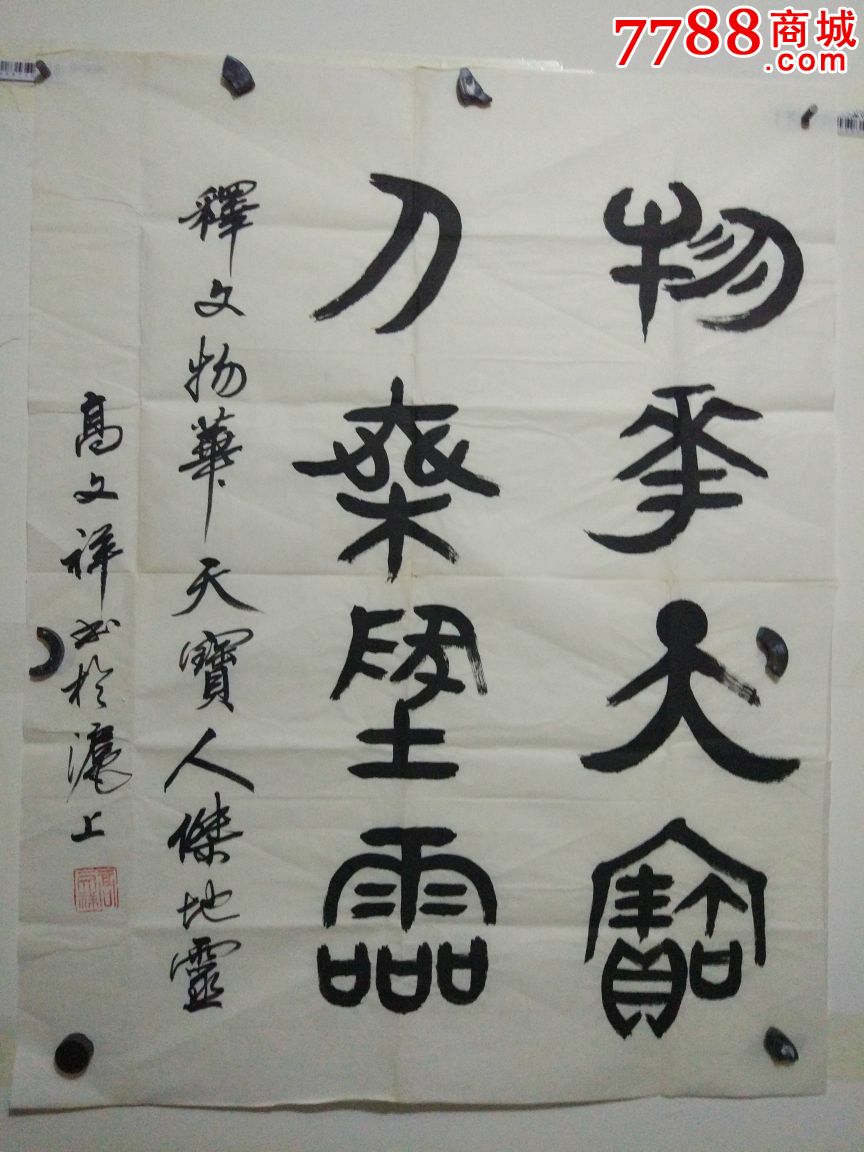 物華天寶
人傑地靈
釋文物華天寶人傑地靈
高文祥書於滬上
7788商城
.com